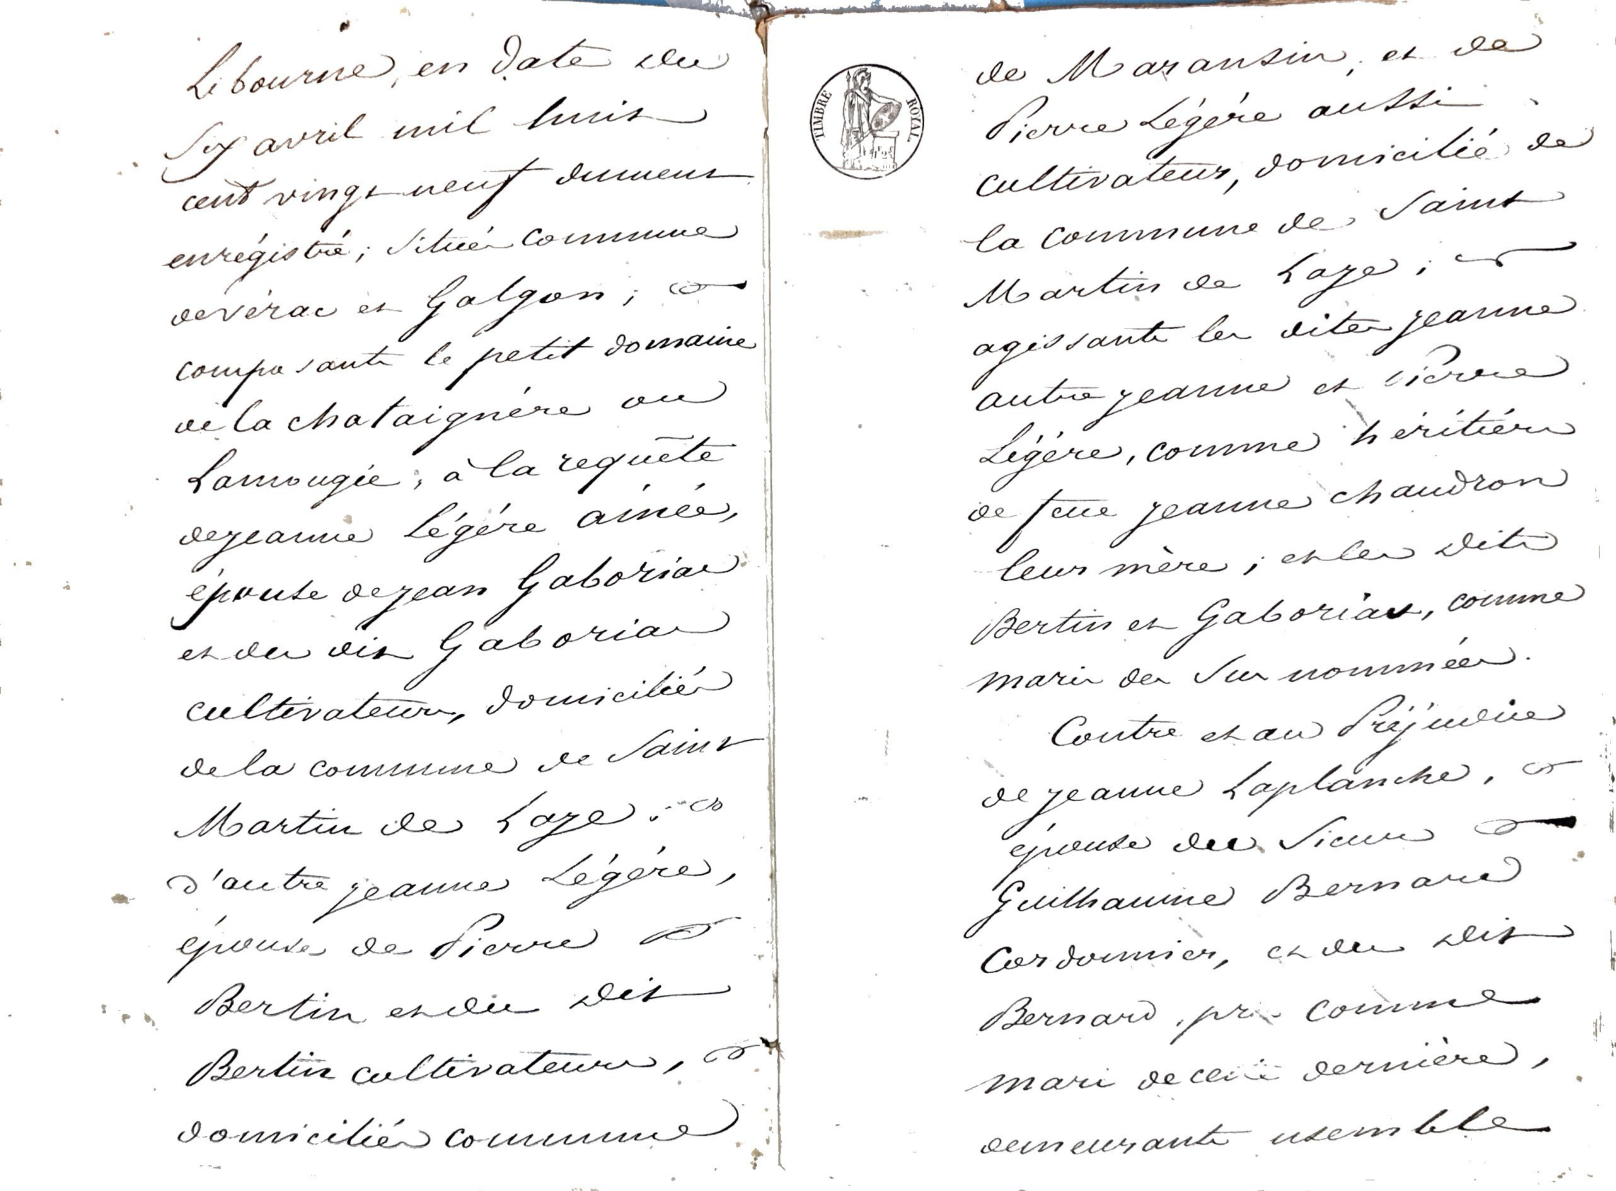 Libourne, en date du
Six avril mil huit
cent vingt neuf dument
enrégistré; Situés commune
de vérac et Galgon;
composants le petit domaine
de la chataignére ou
Lamougie; à la requête
de jeanne Légére ainée,
épouse de jean Gaboriau
et du dit Gaboriau
cultivateurs, domiciliés
de la commune de Saint
Martin de Laye;
d'autre jeanne Légére,
épouse de Pierre
Bertin et du dit
Bertin cultivateurs,
domiciliés commune
TIMBRE ROYAL
de Maransin, et de
Pierre Légére aussi
cultivateur, domicilié de
la commune de Saint
Martin de Laye;
agissants les dites jeanne
autre jeanne et Pierre
Légére, comme héritiérs
de feue jeanne chaudron
leur mère; et les dits
Bertin et Gaboriau, comme
maris des Sus nommées.
Contre et au Préjudice
de jeanne Laplanche,
épouse du Sieur
Guilhaume Bernard
Cordonnier, et du dit
Bernard, pris comme
mari de cette dernière,
demeurants ensemble